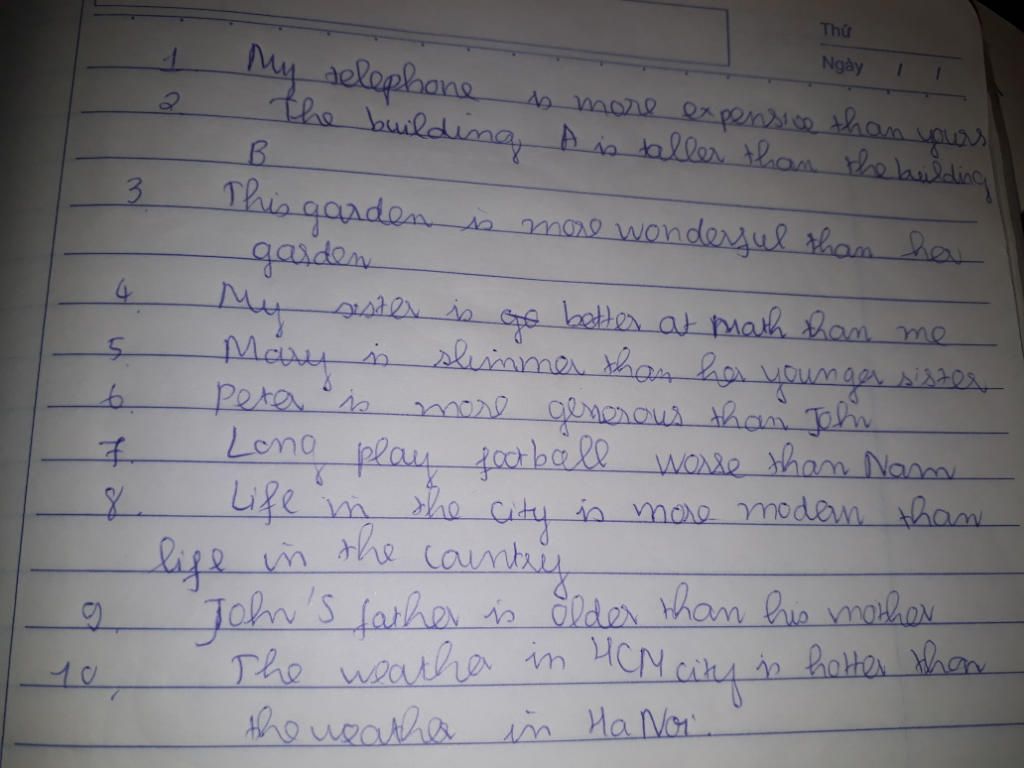 Thứ
Ngày / /
1 My telephone is more expensive than yours
2 The building A is taller than the building
B
3 This garden is more wonderful than her
garden
4 My sister is go better at math than me
5 Mary is slimmer than her younger sister
6 Peter is more generous than John
7. Long play football worse than Nam
8. Life in the city is more modern than
life in the country
9. John's father is older than his mother
10. The weather in HCM city is hotter than
the weather in Ha Noi.